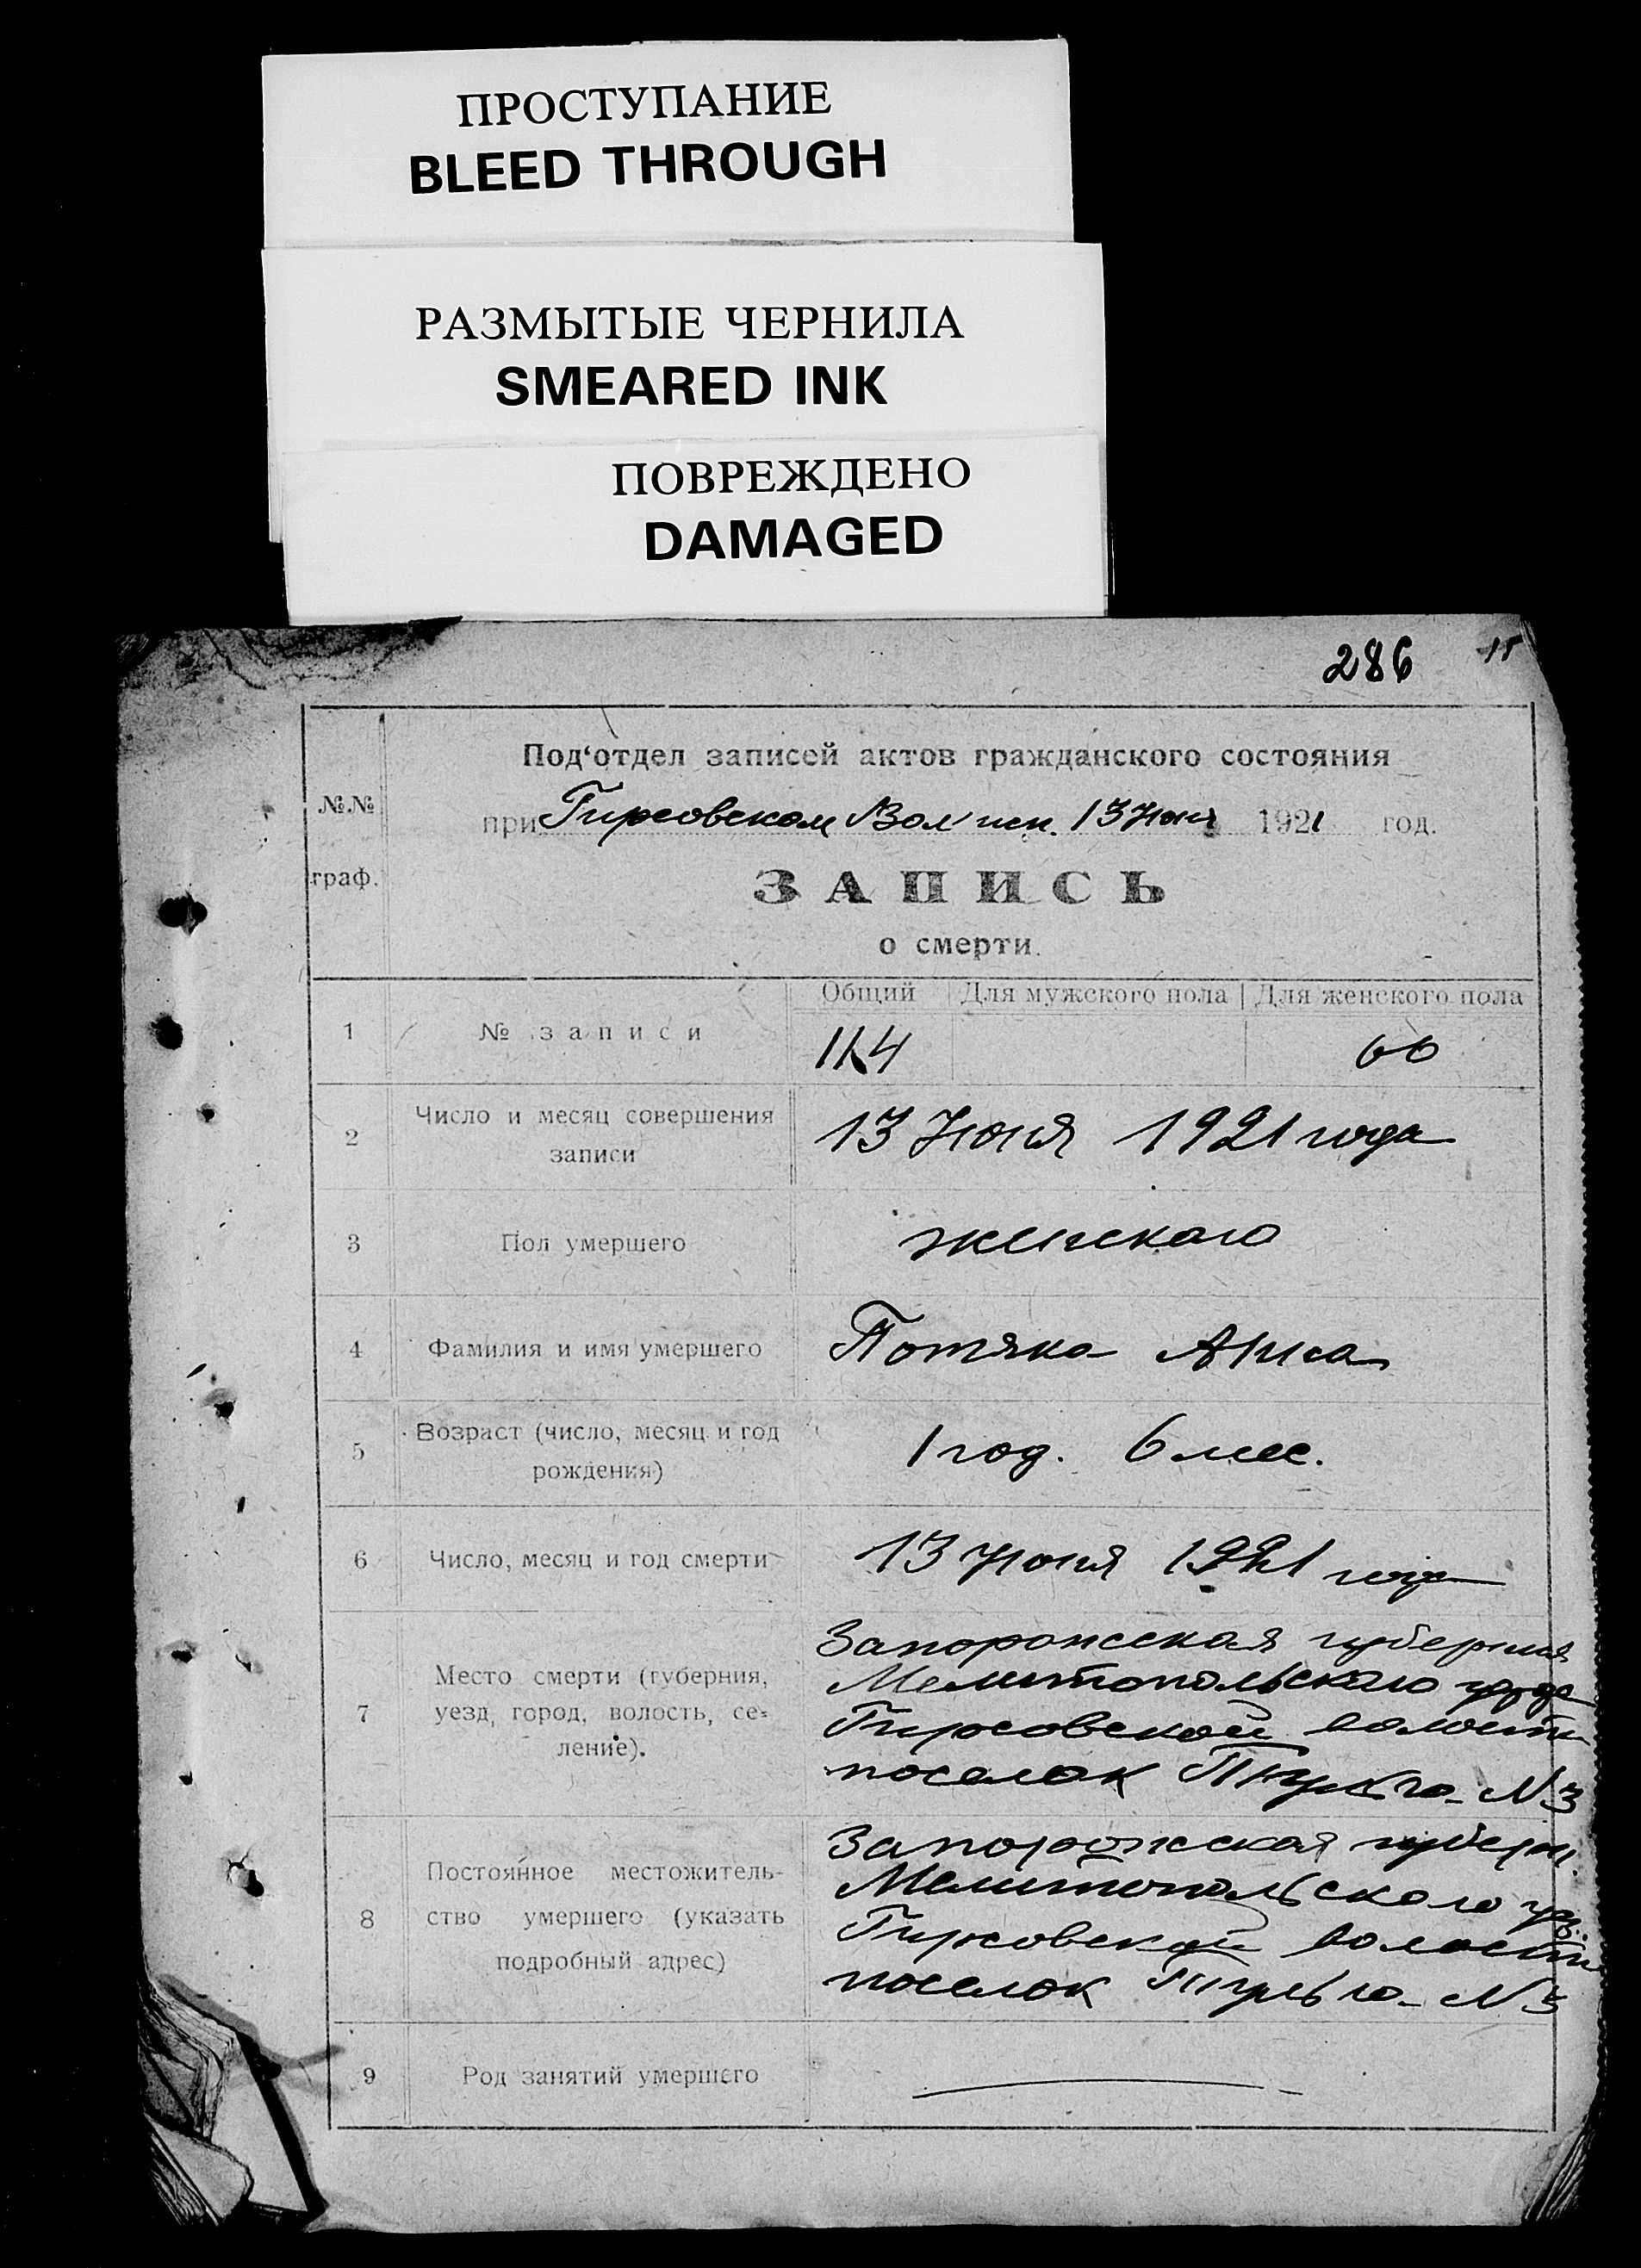 ПРОСТУПАНИЕ
BLEED THROUGH
РАЗМЫТЫЕ ЧЕРНИЛА
SMEARED INK
ПОВРЕЖДЕНО
DAMAGED
286
№№
граф.
Под‘отдел записей актов гражданского состояния
при Гирсовском Вол исп. 13 Июня 1921 год.
ЗАПИСЬ
о смерти.
Общий Для мужского пола Для женского пола
1 № записи 114 66
2 Число и месяц совершения
записи
13 Июня 1921 года
3 Пол умершего женского
4 Фамилия и имя умершего Потяка Анна
5 Возраст (число, месяц и год
рождения)
1 год. 6 мес.
6 Число, месяц и год смерти 13 Июня 1921 года
7 Место смерти (губерния,
уезд, город, волость, се-
ление).
Запорожская губерния
Мелитопольского уезда
Гирсовской волости
поселок № 3
8 Постоянное местожитель-
ство умершего (указать
подробный адрес)
Запорожская губерн.
Мелитопольского уез.
Гирсовской волости
поселок № 3
9 Род занятий умершего